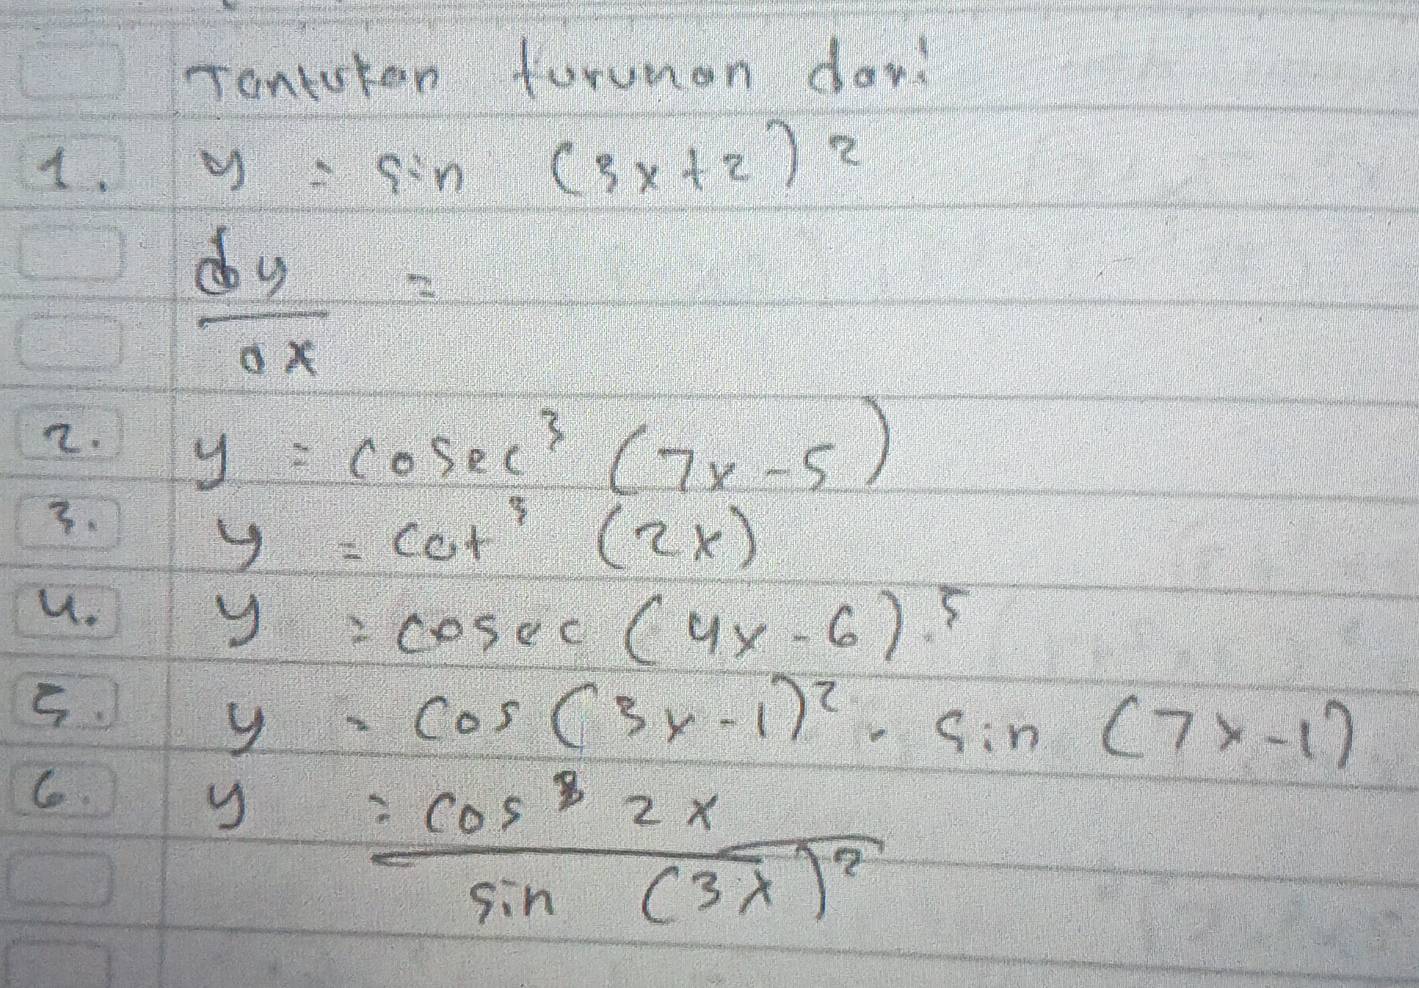 Tentukan turunan dari
1. y = sin (3x+2)²
dy =
dx
2. y = cosec³ (7x-5)
3. y = cot³ (2x)
4. y = cosec (4x-6)⁵
5. y = cos (3x-1)² . sin (7x-1)
6. y = cos³ 2x
sin (3x)²